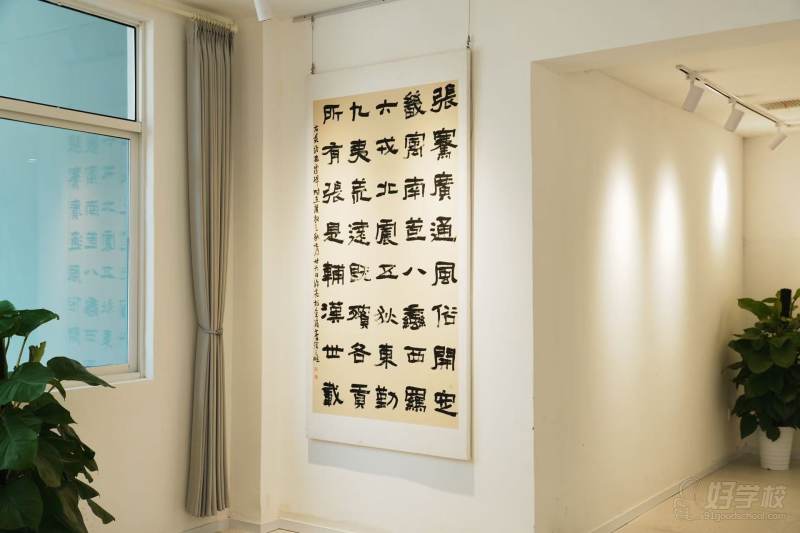 張騫廣通風俗開定
畿寓南苞八蠻西羈
六戎北震五狄東勤
九夷荒遠既殯各貢
所有張是輔漢世載
好学校
91goodschool.com